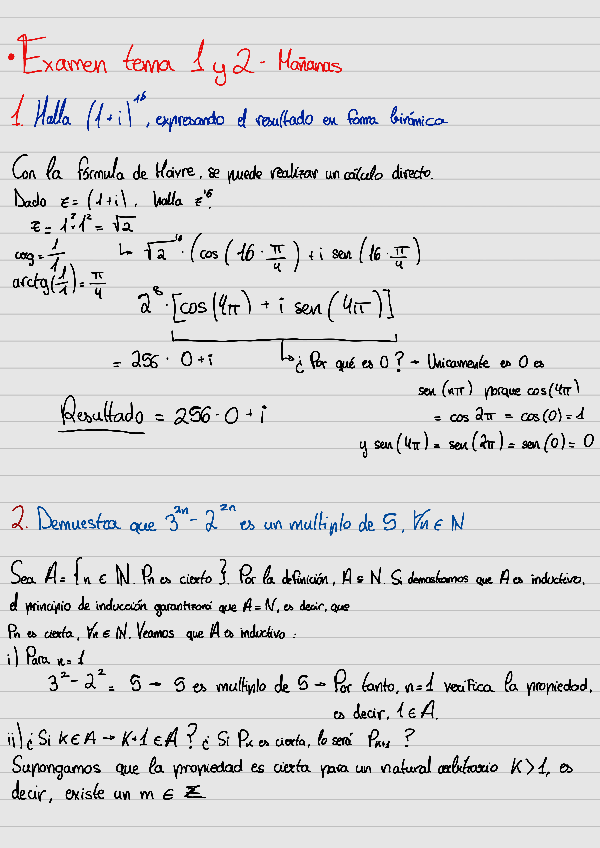 • Examen tema 1 y 2 - Mañanas
1. Halla (1+i)^16, expresando el resultado en forma binómica
Con la fórmula de Moivre, se puede realizar un cálculo directo.
Dado z = (1+i), halla z^16.
z = 1² + 1² = √2
cosg = 1/1
↳ √2^16 · (cos(16 · π/4) + i sen(16 · π/4)
arctg(1/1) = π/4
2^8 · [cos(4π) + i sen(4π)]
= 256 · 0 + i
↳ ¿Por qué es 0? → Unicamente es 0 es
sen(nπ) porque cos(4π)
= cos 2π = cos(0) = 1
y sen(4π) = sen(2π) = sen(0) = 0
Resultado = 256 · 0 + i
2. Demuestra que 3^2n - 2^2n es un multiplo de 5, ∀n ∈ N
Sea A = {n ∈ N. Pn es cierto}. Por la definición, A ⊆ N. Si demostramos que A es inductivo,
el principio de inducción garantizará que A = N, es decir, que
Pn es cierta, ∀n ∈ N. Veamos que A es inductivo:
i) Para n = 1
3² - 2² = 5 → 5 es multiplo de 5 → Por tanto, n=1 verifica la propiedad,
es decir, 1 ∈ A.
ii) ¿Si K ∈ A → K+1 ∈ A? ¿Si Pk es cierta, lo será Pk+1?
Supongamos que la propiedad es cierta para un natural arbitrario K > 1, es
decir, existe un m ∈ Z